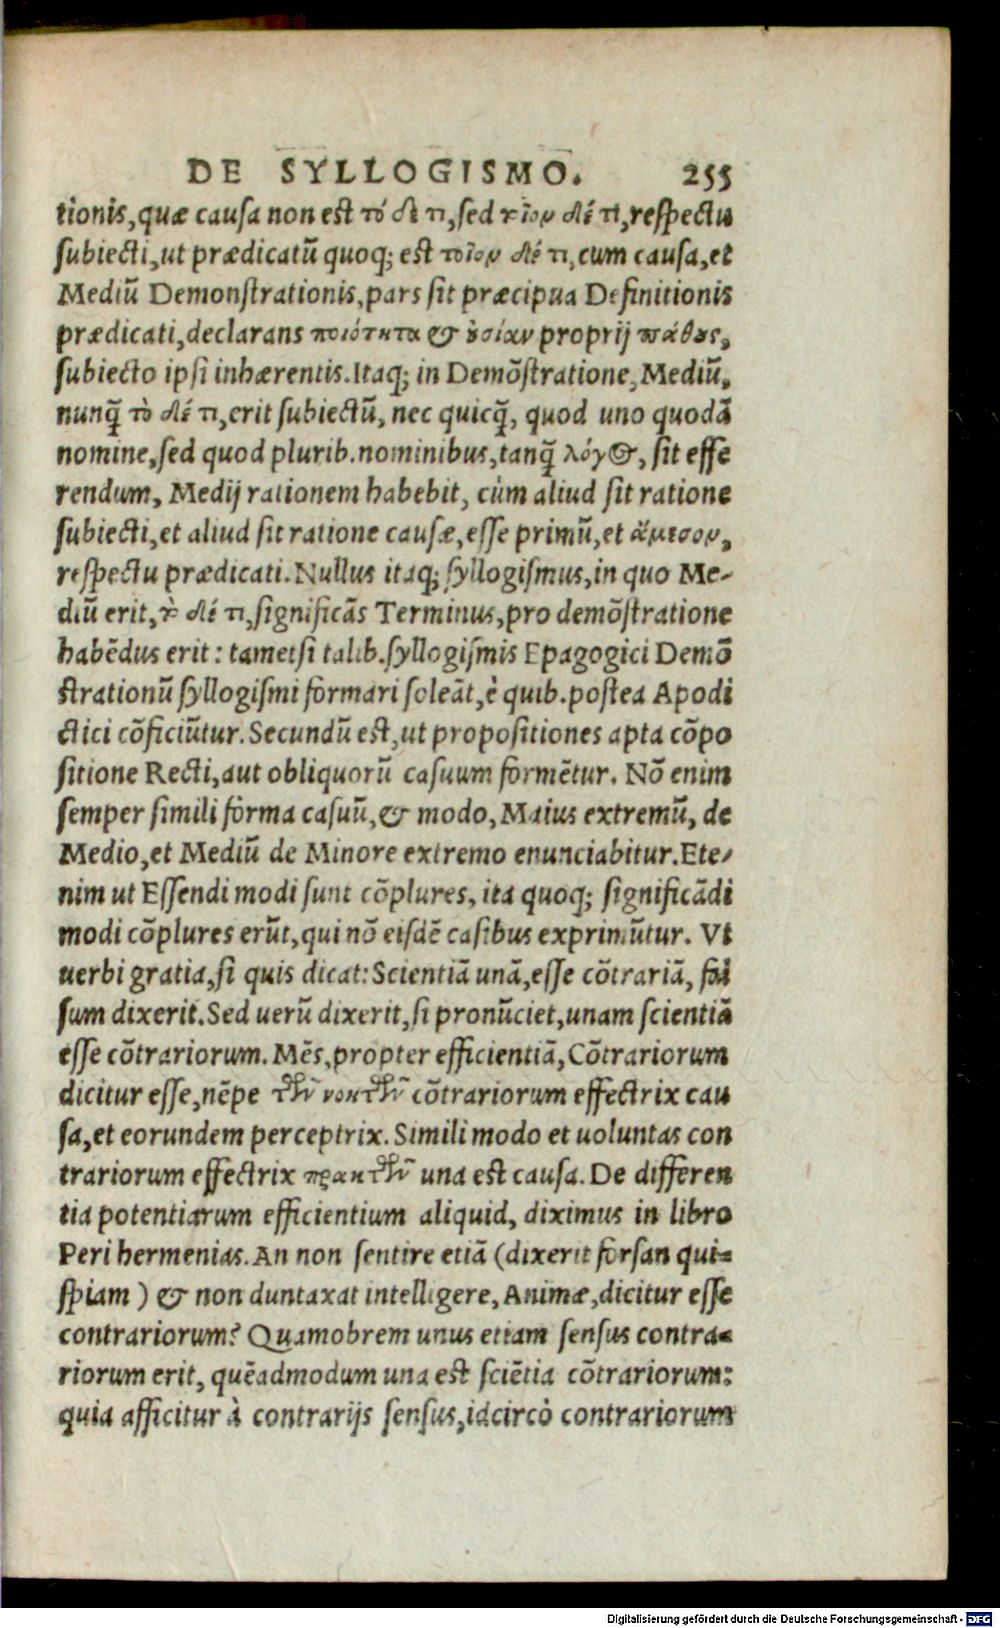 DE SYLLOGISMO. 255
tionis,quæ causa non est τό δέ τι,sed ποῖον δέ τι,respectu
subiecti,ut prædicatũ quoq; est ποῖον δέ τι,cum causa,et
Mediũ Demonstrationis,pars sit præcipua Definitionis
prædicati,declarans ποιότητα & ȣσίαν proprij πάθȣς,
subiecto ipsi inhærentis.Itaq; in Demõstratione,Mediũ,
nunq̃ τὸ δέ τι,erit subiectũ, nec quicq̃, quod uno quodã
nomine,sed quod plurib.nominibus,tanq̃ λόγος, sit effe
rendum, Medij rationem habebit, cùm aliud sit ratione
subiecti,et aliud sit ratione causæ,esse primũ,et ἄμεσον,
respectu prædicati.Nullus itaq; syllogismus,in quo Me-
diũ erit, δέ τι,significãs Terminus,pro demõstratione
habẽdus erit: tametsi talib.syllogismis Epagogici Demõ
strationũ syllogismi formari soleãt,è quib.postea Apodi
ctici cõficiũtur.Secundũ est,ut propositiones apta cõpo
sitione Recti,aut obliquorũ casuum formẽtur. Nõ enim
semper simili forma casuũ,& modo, Maius extremũ, de
Medio,et Mediũ de Minore extremo enunciabitur.Ete-
nim ut Essendi modi sunt cõplures, ita quoq; significãdi
modi cõplures erũt,qui nõ eisdẽ casibus exprimũtur. Vt
uerbi gratia,si quis dicat: Scientiã unã,esse cõtrariã, fal
sum dixerit.Sed uerũ dixerit,si pronũciet,unam scientiã
esse cõtrariorum. Mẽs,propter efficientiã,Cõtrariorum
dicitur esse,nẽpe τῶν νοητῶν cõtrariorum effectrix cau
sa,et eorundem perceptrix.Simili modo et uoluntas con
trariorum effectrix πρακτῶν una est causa. De differen
tia potentiarum efficientium aliquid, diximus in libro
Peri hermenias. An non sentire etiã (dixerit forsan qui-
spiam ) & non duntaxat intelligere, Animæ,dicitur esse
contrariorum? Quamobrem unus etiam sensus contra-
riorum erit, quẽadmodum una est sciẽtia cõtrariorum:
quia afficitur à contrarijs sensus,idcircò contrariorum
Digitalisierung gefördert durch die Deutsche Forschungsgemeinschaft - DFG